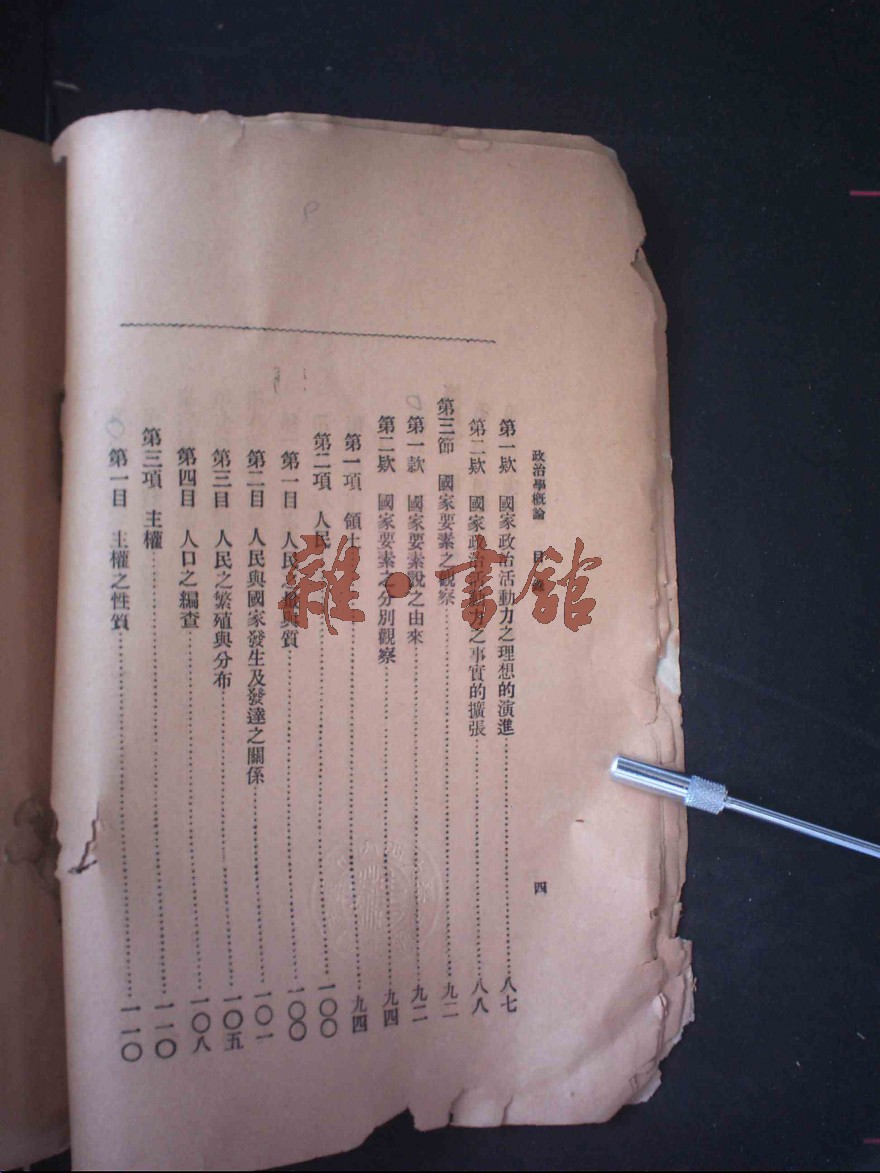 政治學概論 目
四
第一欵 國家政治活動力之理想的演進 八七
第二欵 國家政治活動力之事實的擴張 八八
第三節 國家要素之觀察 九二
第一款 國家要素說之由來 九二
第二欵 國家要素之分別觀察 九四
第一項 領土 九四
第二項 人民 一〇〇
第一目 人民之 質 一〇〇
第二目 人民與國家發生及發達之關係 一〇一
第三目 人民之繁殖與分布 一〇五
第四目 人口之編查 一〇八
第三項 主權 一一〇
第一目 主權之性質 一一〇
雜·書館